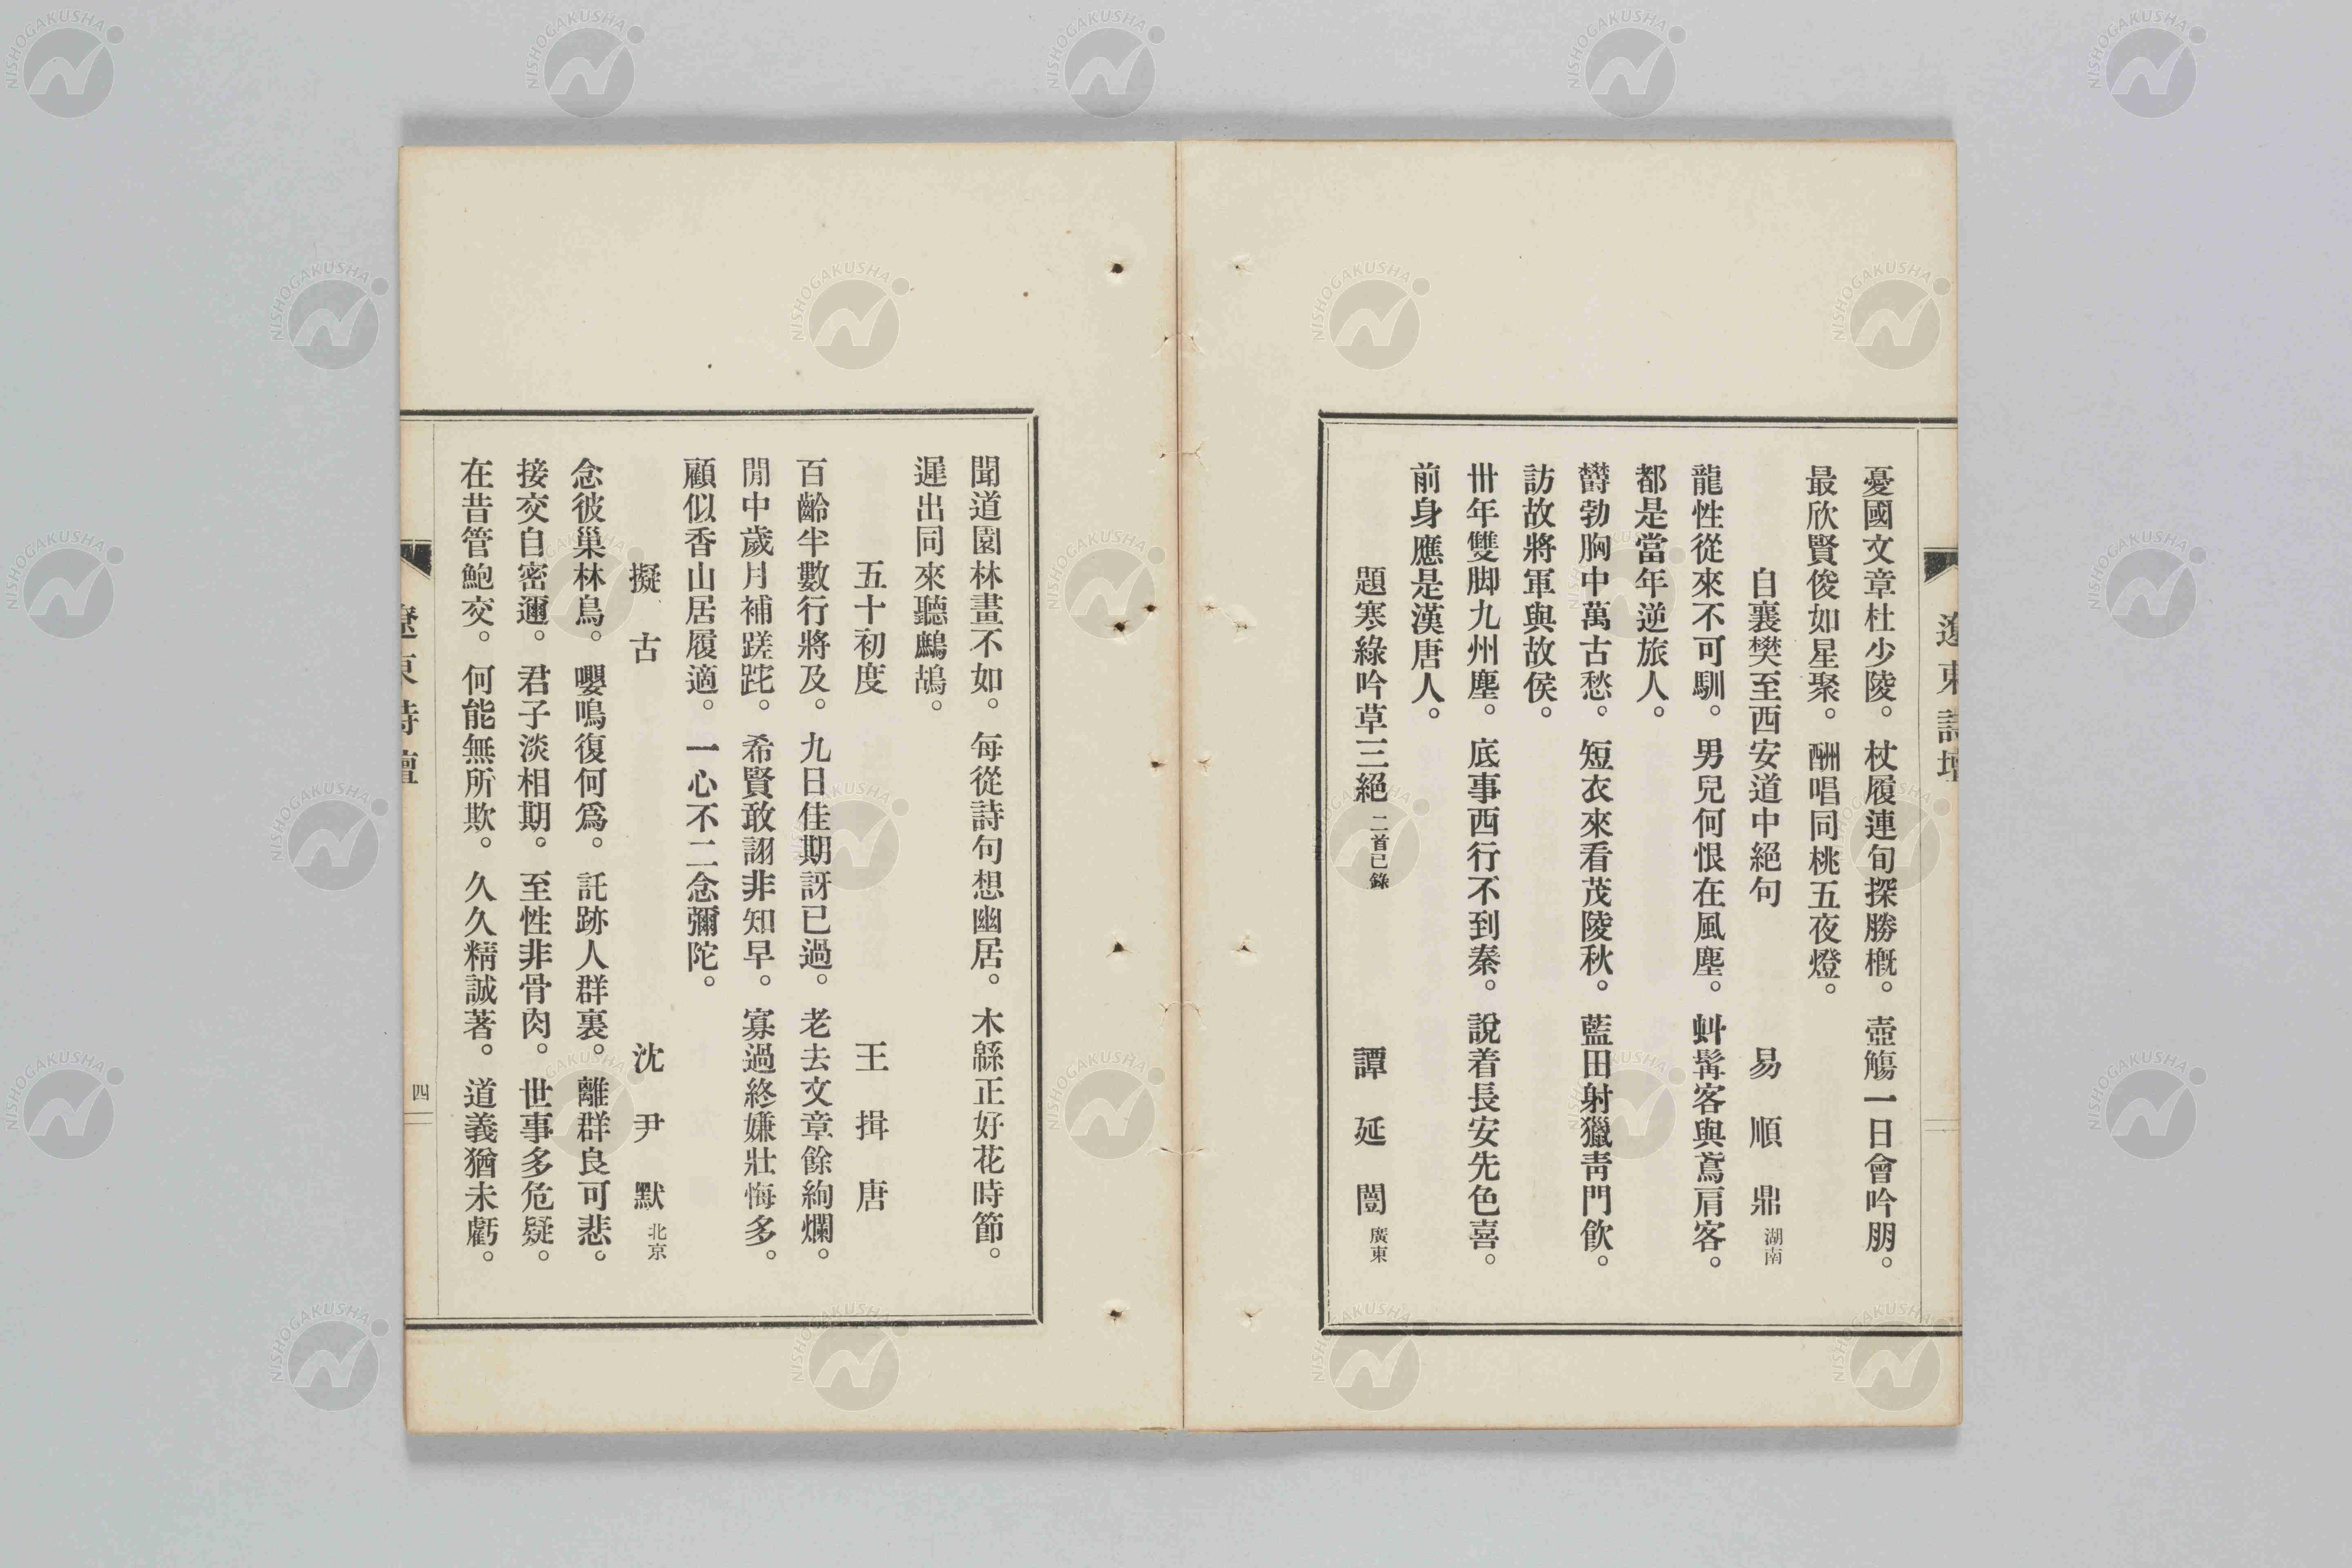 遼東詩壇
憂國文章杜少陵。杖履連旬探勝概。壺觴一日會吟朋。
最欣賢俊如星聚。酬唱同桃五夜燈。
自襄樊至西安道中絕句 易順鼎 湖南
龍性從來不可馴。男兒何恨在風塵。虯髯客與鳶肩客。
都是當年逆旅人。
欝勃胸中萬古愁。短衣來看茂陵秋。藍田射獵靑門飮。
訪故將軍與故侯。
卅年雙脚九州塵。底事西行不到秦。說着長安先色喜。
前身應是漢唐人。
題寒綠吟草三絕 二首已錄 譚延闓 廣東
聞道園林畫不如。每從詩句想幽居。木緜正好花時節。
遲出同來聽鷓鴣。
五十初度 王揖唐
百齡半數行將及。九日佳期訝已過。老去文章餘絢爛。
閒中歲月補蹉跎。希賢敢詡非知早。寡過終嫌壯悔多。
顧似香山居履適。一心不二念彌陀。
擬古 沈尹默 北京
念彼巢林鳥。嚶鳴復何爲。託跡人群裏。離群良可悲。
接交自密邇。君子淡相期。至性非骨肉。世事多危疑。
在昔管鮑交。何能無所欺。久久精誠著。道義猶未虧。
遼東詩壇
四